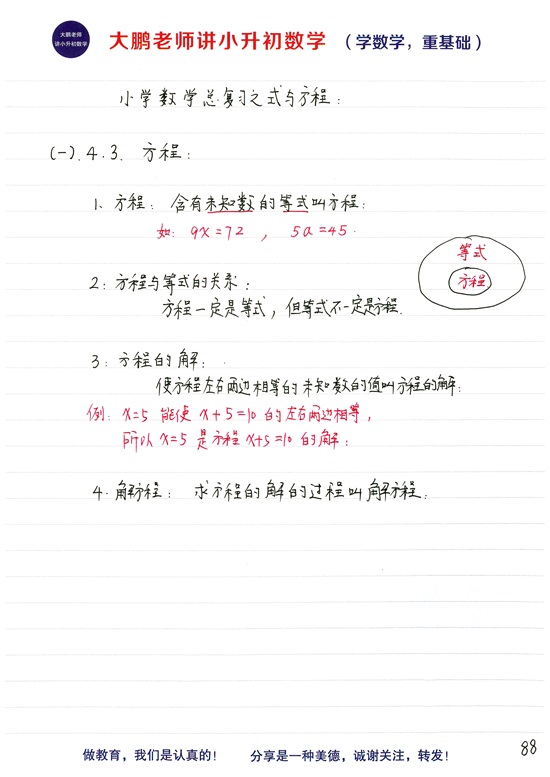 大鹏老师
讲小升初数学
大鹏老师讲小升初数学 （学数学，重基础）
小学数学总复习之式与方程：
(一).4.3. 方程：
1、方程：含有未知数的等式叫方程.
如：9x=72 ， 5a=45.
等式
方程
2：方程与等式的关系：
方程一定是等式，但等式不一定是方程.
3：方程的解：
使方程左右两边相等的未知数的值叫方程的解.
例：x=5 能使 x+5=10 的左右两边相等，
所以 x=5 是方程 x+5=10 的解.
4.解方程： 求方程的解的过程叫解方程.
做教育，我们是认真的！ 分享是一种美德，诚谢关注，转发！
88